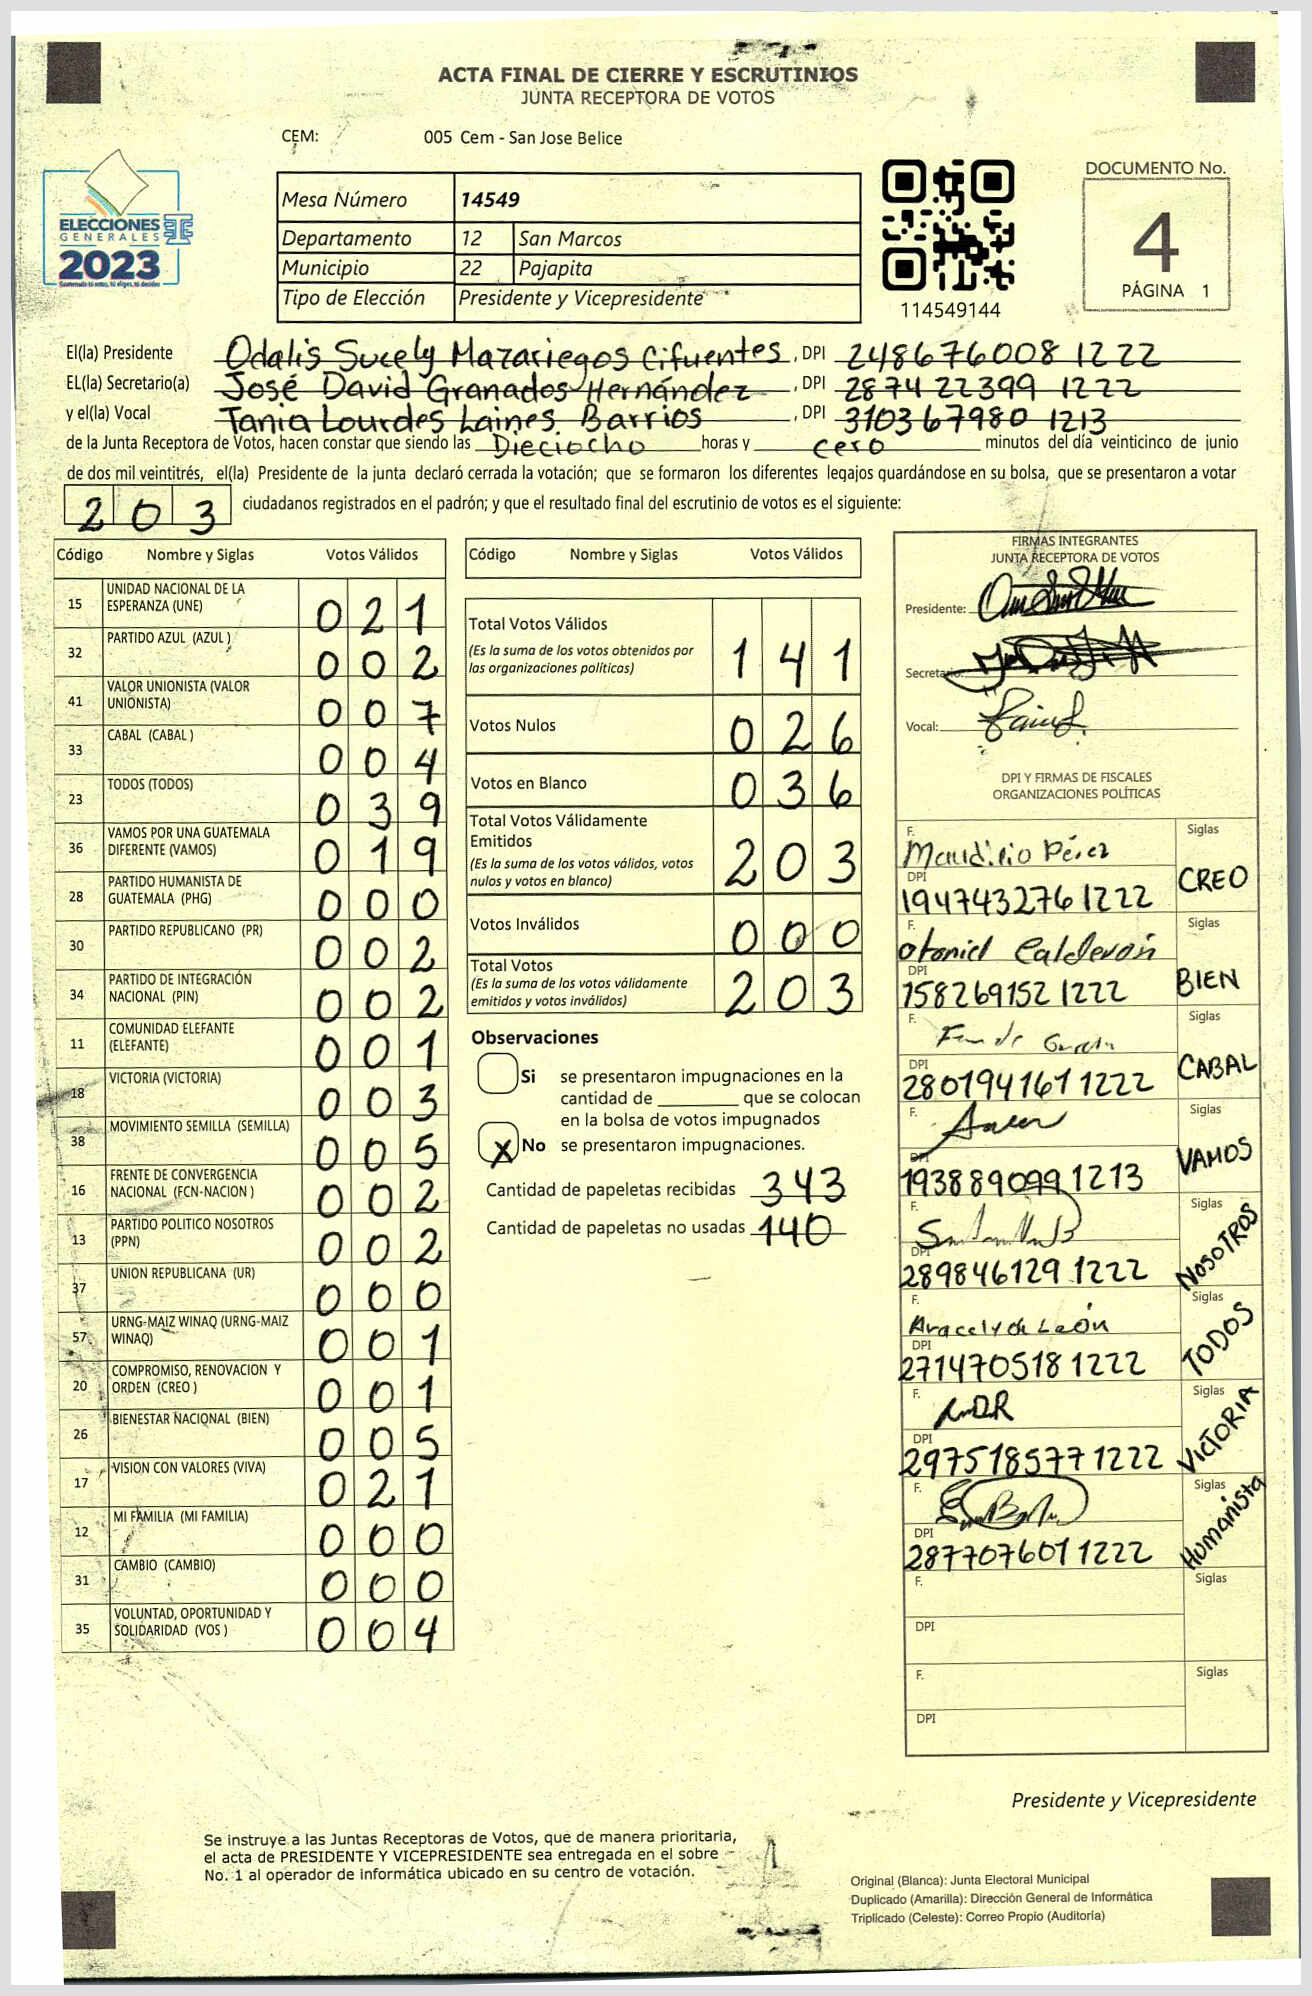 ACTA FINAL DE CIERRE Y ESCRUTINIOS
JUNTA RECEPTORA DE VOTOS
CEM: 005 Cem - San Jose Belice
ELECCIONES
GENERALES
2023
Mesa Número 14549
Departamento 12 San Marcos
Municipio 22 Pajapita
Tipo de Elección Presidente y Vicepresidente
114549144
DOCUMENTO No.
4
PÁGINA 1
El(la) Presidente Odalis Sucely Mazariegos Cifuentes, DPI 248676008 1222
EL(la) Secretario(a) José David Granados Hernández, DPI 2874 22399 1222
y el(la) Vocal Tania Lourdes Laines Barrios, DPI 310367980 1213
de la Junta Receptora de Votos, hacen constar que siendo las Dieciocho horas y cero minutos del día veinticinco de junio
de dos mil veintitrés, el(la) Presidente de la junta declaró cerrada la votación; que se formaron los diferentes legajos guardándose en su bolsa, que se presentaron a votar
203 ciudadanos registrados en el padrón; y que el resultado final del escrutinio de votos es el siguiente:
Código Nombre y Siglas Votos Válidos
15 UNIDAD NACIONAL DE LA ESPERANZA (UNE) 021
32 PARTIDO AZUL (AZUL ) 002
41 VALOR UNIONISTA (VALOR UNIONISTA) 007
33 CABAL (CABAL ) 004
23 TODOS (TODOS) 039
36 VAMOS POR UNA GUATEMALA DIFERENTE (VAMOS) 019
28 PARTIDO HUMANISTA DE GUATEMALA (PHG) 000
30 PARTIDO REPUBLICANO (PR) 002
34 PARTIDO DE INTEGRACIÓN NACIONAL (PIN) 002
11 COMUNIDAD ELEFANTE (ELEFANTE) 001
18 VICTORIA (VICTORIA) 003
38 MOVIMIENTO SEMILLA (SEMILLA) 005
16 FRENTE DE CONVERGENCIA NACIONAL (FCN-NACION ) 002
13 PARTIDO POLITICO NOSOTROS (PPN) 002
37 UNION REPUBLICANA (UR) 000
57 URNG-MAIZ WINAQ (URNG-MAIZ WINAQ) 001
20 COMPROMISO, RENOVACION Y ORDEN (CREO ) 001
26 BIENESTAR NACIONAL (BIEN) 005
17 VISION CON VALORES (VIVA) 021
12 MI FAMILIA (MI FAMILIA) 000
31 CAMBIO (CAMBIO) 000
35 VOLUNTAD, OPORTUNIDAD Y SOLIDARIDAD (VOS ) 004
Código Nombre y Siglas Votos Válidos
Total Votos Válidos 141
(Es la suma de los votos obtenidos por
las organizaciones políticas)
Votos Nulos 026
Votos en Blanco 036
Total Votos Válidamente
Emitidos 203
(Es la suma de los votos válidos, votos
nulos y votos en blanco)
Votos Inválidos 000
Total Votos 203
(Es la suma de los votos válidamente
emitidos y votos inválidos)
Observaciones
Si se presentaron impugnaciones en la
cantidad de ________ que se colocan
en la bolsa de votos impugnados
X No se presentaron impugnaciones.
Cantidad de papeletas recibidas 343
Cantidad de papeletas no usadas 140
FIRMAS INTEGRANTES
JUNTA RECEPTORA DE VOTOS
Presidente:
Secretario:
Vocal:
DPI Y FIRMAS DE FISCALES
ORGANIZACIONES POLÍTICAS
F. Maudilio Pérez Siglas
DPI 1947432761222 CREO
F. Otoniel Calderón Siglas
DPI 158269152 1222 BIEN
F. Siglas
DPI 2801941611222 CABAL
F. Siglas
DPI 1938890991213 VAMOS
F. Siglas
DPI 289846129 1222 NOSOTROS
F. Aracely de León Siglas
DPI 271470518 1222 TODOS
F. Siglas
DPI 2975185771222 VICTORIA
F. Siglas
DPI 2877076011222 Humanista
F. Siglas
DPI
F. Siglas
DPI
Presidente y Vicepresidente
Se instruye a las Juntas Receptoras de Votos, que de manera prioritaria,
el acta de PRESIDENTE Y VICEPRESIDENTE sea entregada en el sobre
No. 1 al operador de informática ubicado en su centro de votación.
Original (Blanca): Junta Electoral Municipal
Duplicado (Amarilla): Dirección General de Informática
Triplicado (Celeste): Correo Propio (Auditoría)